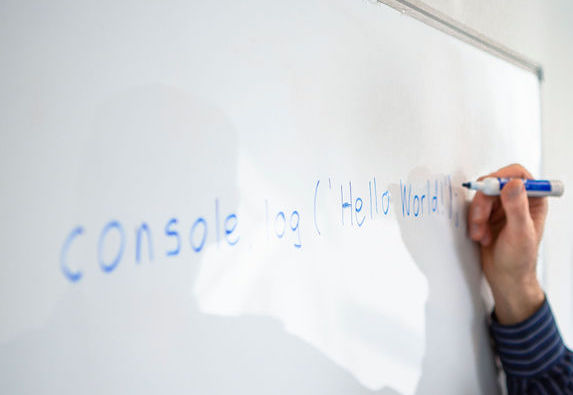 console.log('Hello World!');